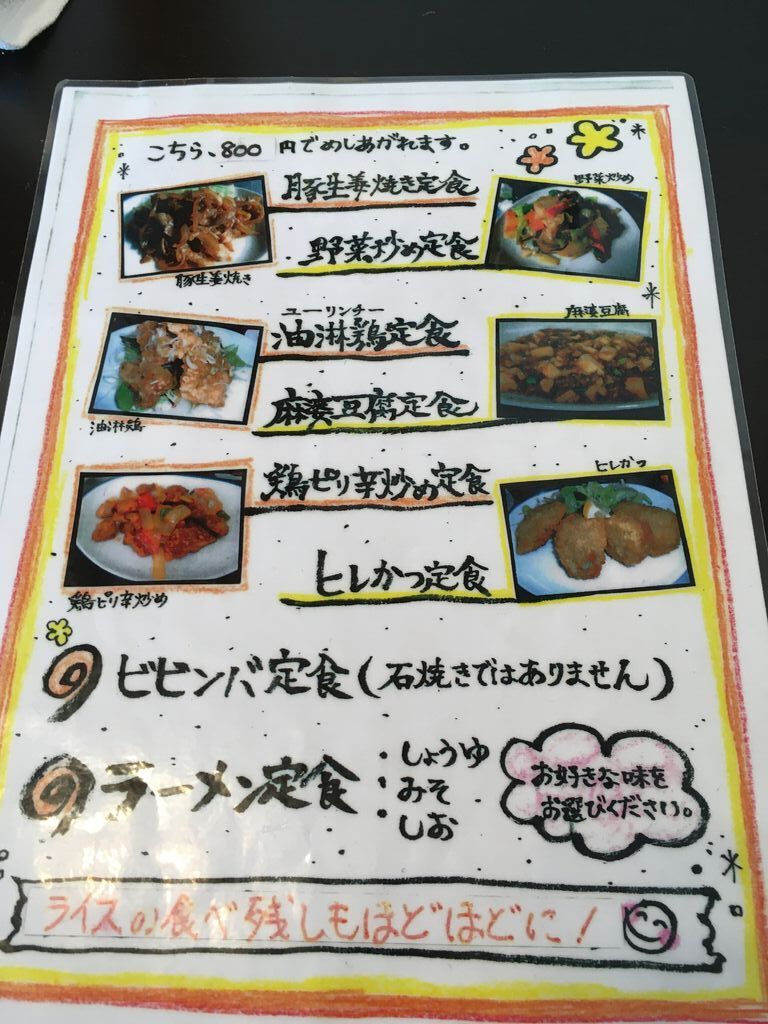 こちら、800円でめしあがれます。
豚生姜焼き定食
野菜炒め
野菜炒め定食
豚生姜焼き
ユーリンチー
油淋鶏定食
麻婆豆腐
麻婆豆腐定食
油淋鶏
鶏ピリ辛炒め定食
ヒレかつ
ヒレかつ定食
鶏ピリ辛炒め
ビビンバ定食(石焼きではありません)
ラーメン定食
・しょうゆ
・みそ
・しお
お好きな味を
お選びください。
ライスの食べ残しもほどほどに!